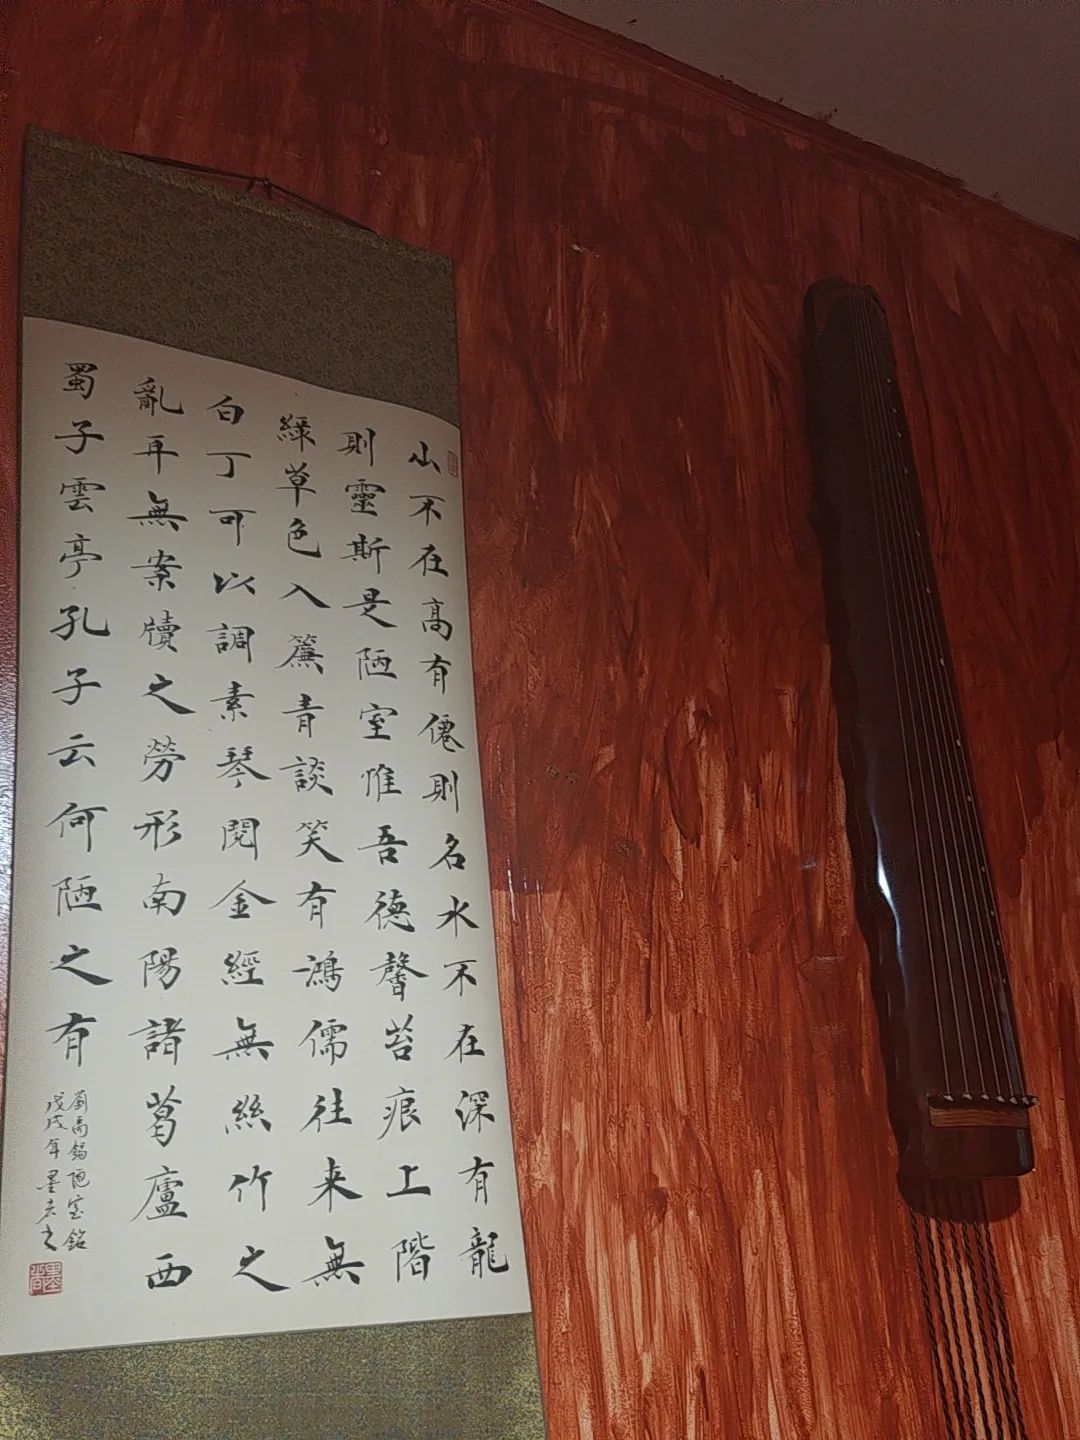 山不在高有僊則名水不在深有龍
則靈斯是陋室惟吾德馨苔痕上階
綠草色入簾青談笑有鴻儒往来無
白丁可以調素琴閱金經無絲竹之
亂耳無案牘之勞形南陽諸葛廬西
蜀子雲亭孔子云何陋之有
劉禹錫陋室銘
戊戌年墨